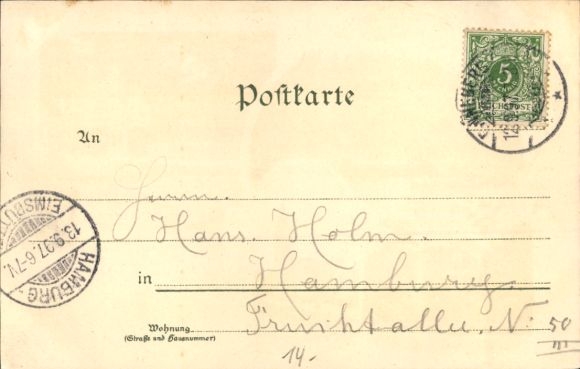 5
REICHSPOST
Postkarte
An
Herrn
Hans. Holm.
in Hamburg.
Fruchtallee, N. 50
III
Wohnung
(Straße und Hausnummer)
14.-
HAMBURG
13.9.97. 6-7N.
EIMSBÜTT